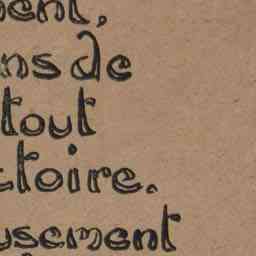 ment,
ns de
tout
toire.
usement